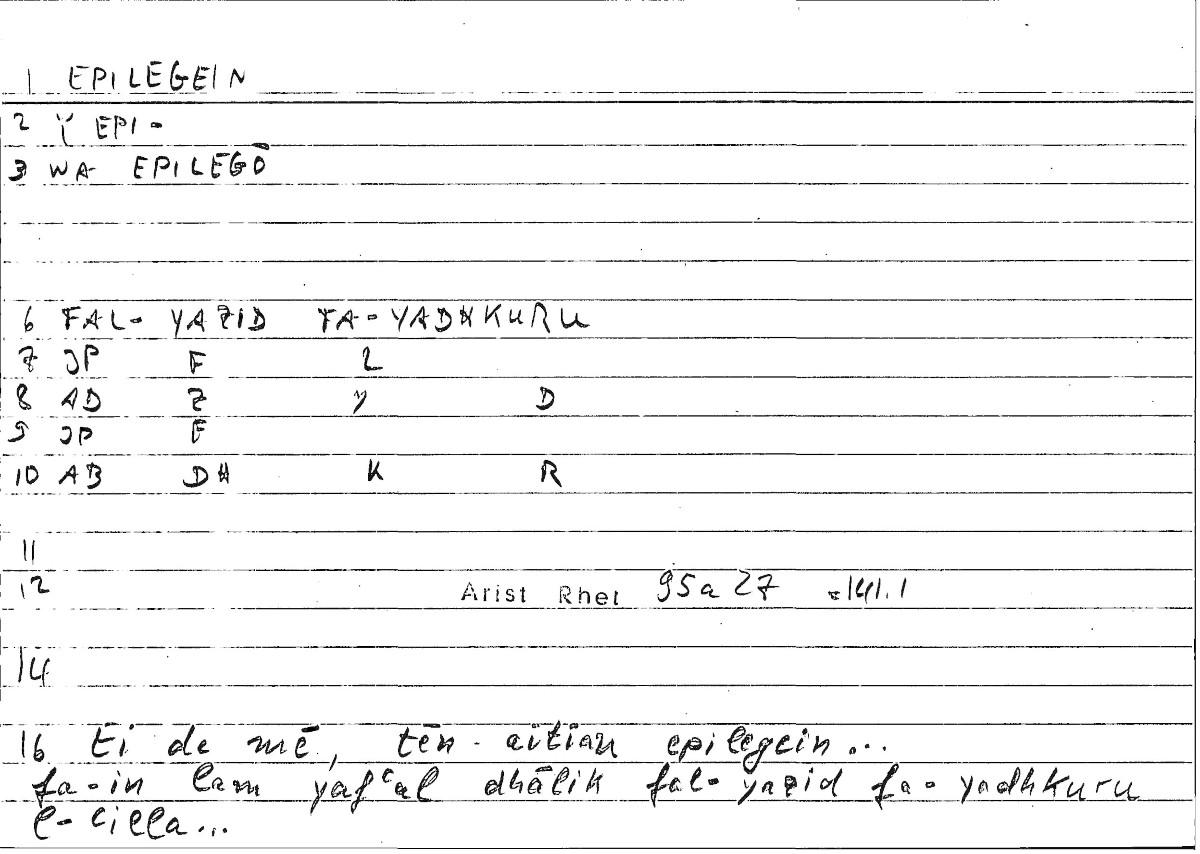 1 EPILEGEIN
2 Y EPI-
3 WA EPILEGŌ
6 FAL- YAZID FA-YADHKURU
7 JP F L
8 AD Z Y D
9 JP F
10 AB DH K R
11
12 Arist Rhet 95a27 =141.1
14
16 Ei de mē, tēn aitian epilegein...
fa-in lam yafʿal dhālik fal-yazid fa-yadhkuru
l-ʿilla...